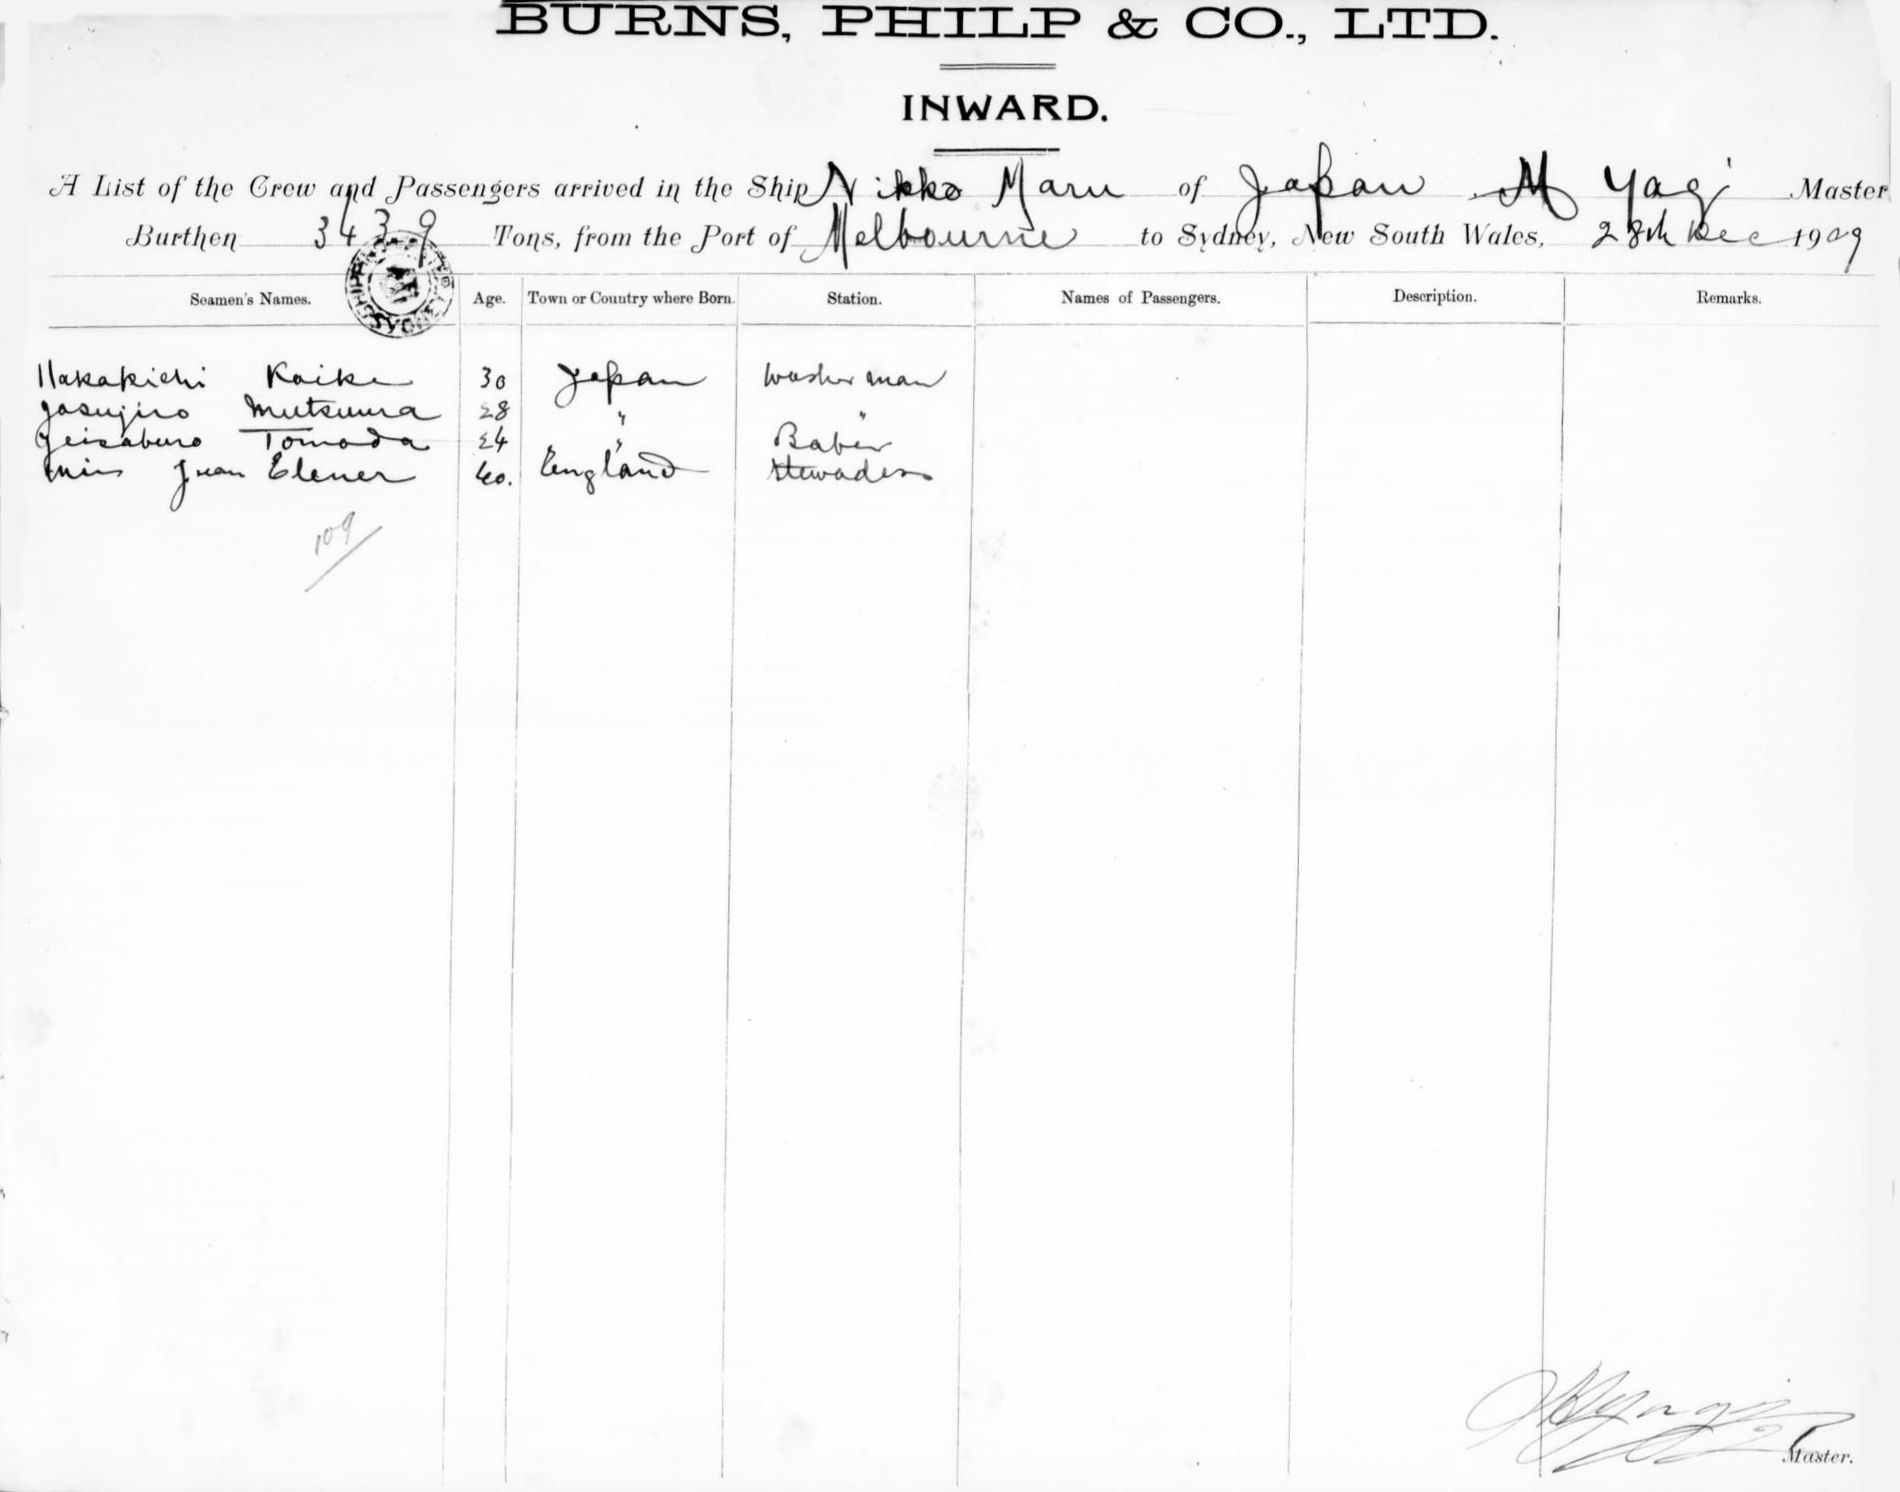 BURNS, PHILP & CO., LTD.
INWARD.
A List of the Crew and Passengers arrived in the Ship Nikko Maru of Japan M Yagi Master
Burthen 3439 Tons, from the Port of Melbourne to Sydney, New South Wales, 28th Dec 1909
Seamen's Names. Age. Town or Country where Born. Station. Names of Passengers. Description. Remarks.
Nakakichi Koike 30 Japan Washerman
Yasujiro Mutsuura 28 " "
Geisaburo Tomoda 24 " Baber
Miss Jean Elener 40. England Stewadess
109
Master.